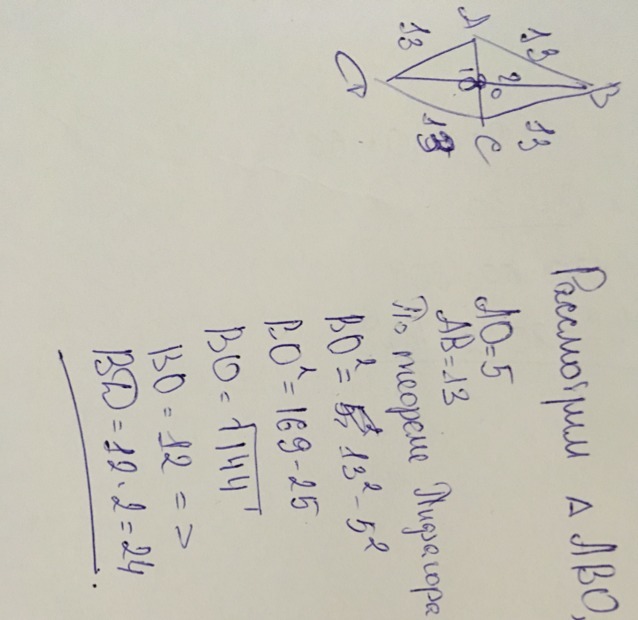 A
13
13
B
10
2
O
D
13
C
13
Рассмотрим Δ ABO,
AO=5
AB=13
По теореме Пифагора
BO² = 13² - 5²
BO² = 169 - 25
BO = √144
BO = 12 =>
BD = 12 · 2 = 24